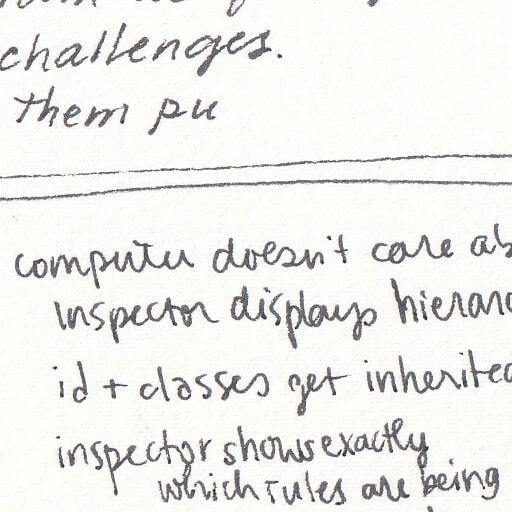 challenges.
them pu
computer doesn't care ab
inspector displays hierarc
id + classes get inherited
inspector shows exactly
which rules are being